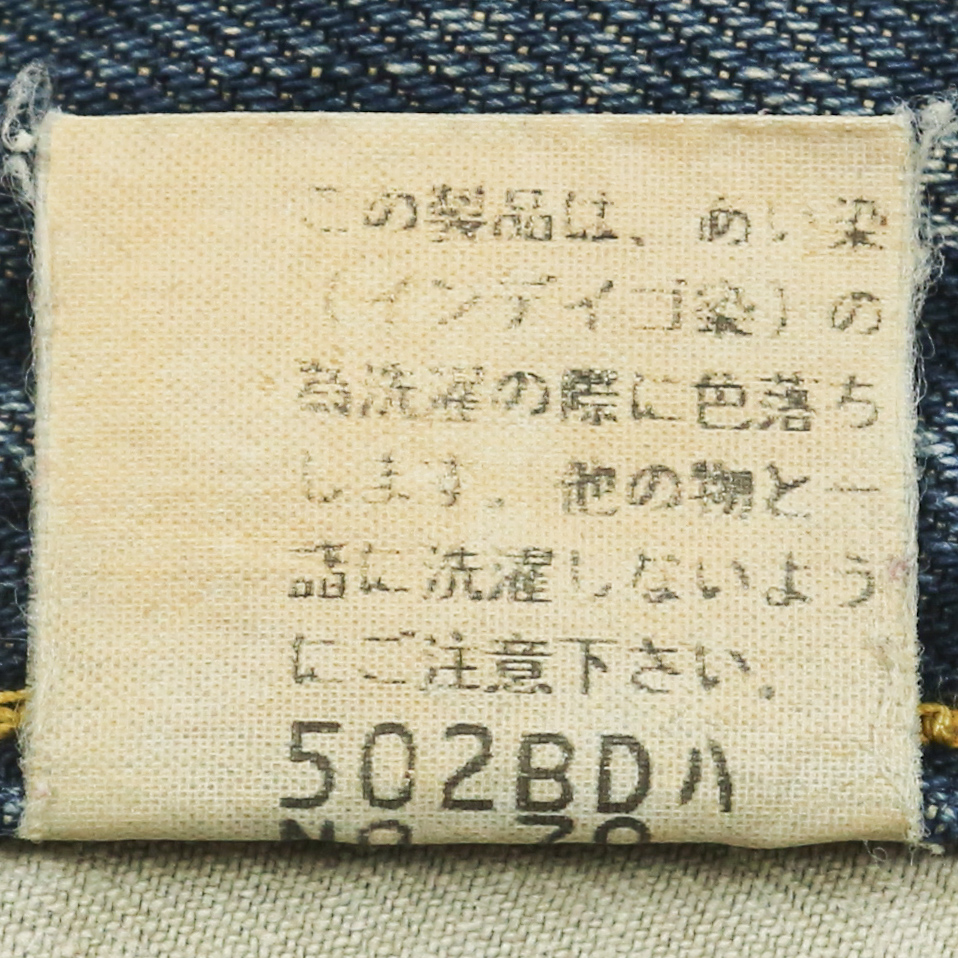 この製品は、あい染
（インデイゴ染）の
為洗濯の際に色落ち
します。他の物と一
諸に洗濯しないよう
にご注意下さい。
502BDA